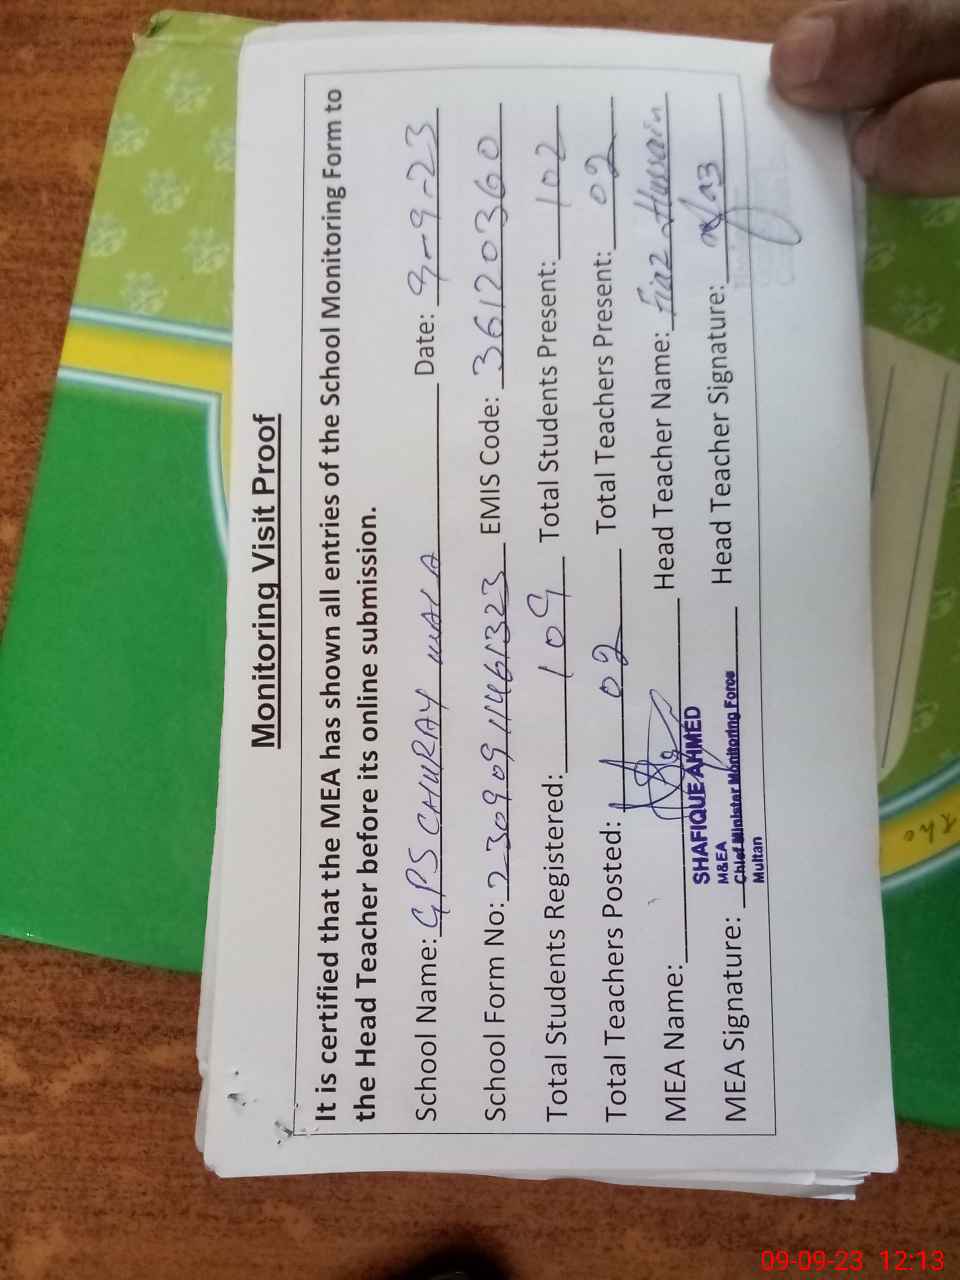 Monitoring Visit Proof
It is certified that the MEA has shown all entries of the School Monitoring Form to
the Head Teacher before its online submission.
School Name: GPS CHURAY WALA Date: 9-9-23
School Form No: 23090911461323 EMIS Code: 36120360
Total Students Registered: 109 Total Students Present: 102
Total Teachers Posted: 02 Total Teachers Present: 02
MEA Name: Head Teacher Name: Fiaz Hussain
SHAFIQUE AHMED
M&EA
MEA Signature: Chief Minister Monitoring Force Head Teacher Signature:
Multan
the
09-09-23 12:13